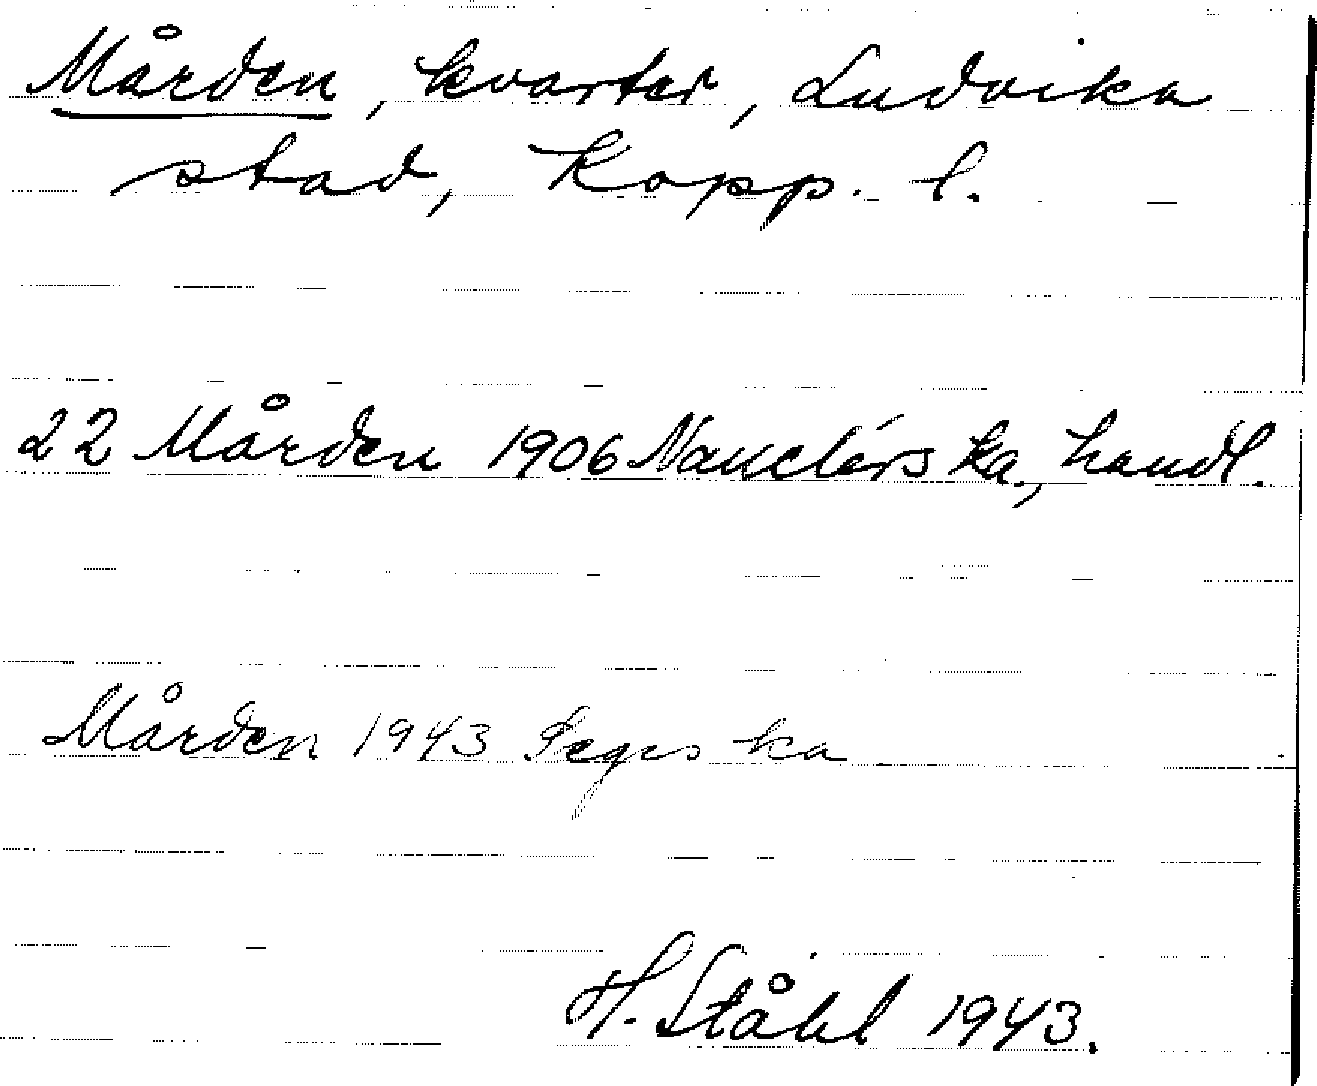 Mården, kvarter, Ludvika
stad, Kopp. l.
22 Mården 1906 Nauclérs ka., handl.
Mården 1943 Seges ka
H. Ståhl 1943.